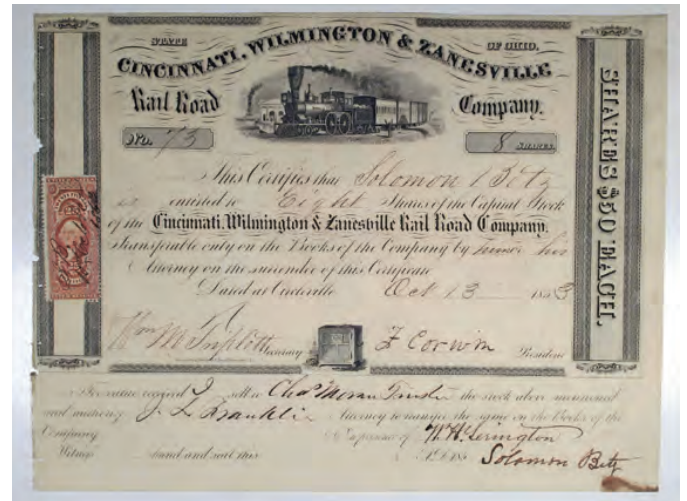 STATE OF OHIO,
CINCINNATI, WILMINGTON & ZANESVILLE
Rail Road Company.
No. 73 8 SHARES
This Certifies that Solomon Betz
is entitled to Eight Shares of the Capital Stock
of the Cincinnati, Wilmington & Zanesville Rail Road Company.
Transferable only on the Books of the Company by him or his
Attorney on the surrender of this Certificate
Dated at Circleville Oct 13 1853
Wm M Triplett Secretary F Corwin President
SHARES $50 EACH.
For value received I sell to Chas Moran Trustee the stock above mentioned
and authorize J. L. Franklin Attorney to transfer the same on the Books of the
Company
Witness hand and seal this
In Presence of
Solomon Betz